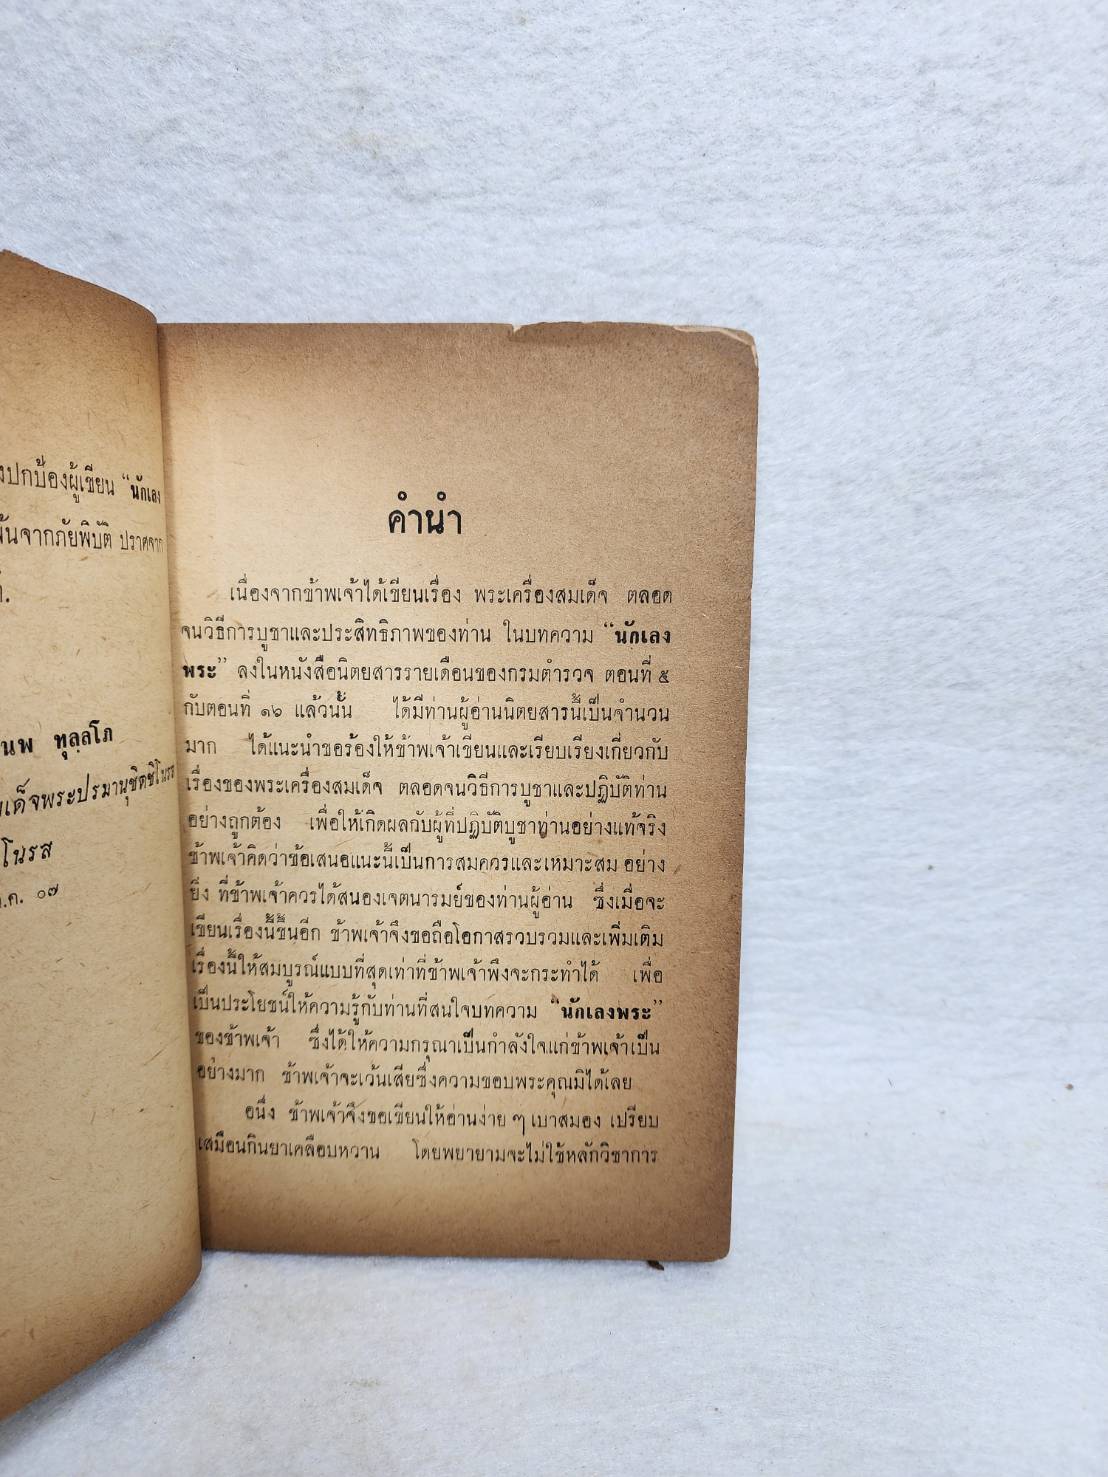 งปกป้องผู้เขียน “นักเลง
พ้นจากภัยพิบัติ ปราศจาก
นพ ทุลฺลโภ
เด็จพระปรมานุชิตชิโนรส
โนรส
.ค. ๐๗
คำนำ
เนื่องจากข้าพเจ้าได้เขียนเรื่อง พระเครื่องสมเด็จ ตลอด
จนวิธีการบูชาและประสิทธิภาพของท่าน ในบทความ “นักเลง
พระ” ลงในหนังสือนิตยสารรายเดือนของกรมตำรวจ ตอนที่ ๕
กับตอนที่ ๑๖ แล้วนั้น ได้มีท่านผู้อ่านนิตยสารนี้เป็นจำนวน
มาก ได้แนะนำขอร้องให้ข้าพเจ้าเขียนและเรียบเรียงเกี่ยวกับ
เรื่องของพระเครื่องสมเด็จ ตลอดจนวิธีการบูชาและปฏิบัติท่าน
อย่างถูกต้อง เพื่อให้เกิดผลกับผู้ที่ปฏิบัติบูชาท่านอย่างแท้จริง
ข้าพเจ้าคิดว่าข้อเสนอแนะนี้เป็นการสมควรและเหมาะสม อย่าง
ยิ่ง ที่ข้าพเจ้าควรได้สนองเจตนารมย์ของท่านผู้อ่าน ซึ่งเมื่อจะ
เขียนเรื่องนี้ขึ้นอีก ข้าพเจ้าจึงขอถือโอกาสรวบรวมและเพิ่มเติม
เรื่องนี้ให้สมบูรณ์แบบที่สุดเท่าที่ข้าพเจ้าพึงจะกระทำได้ เพื่อ
เป็นประโยชน์ให้ความรู้กับท่านที่สนใจบทความ “นักเลงพระ”
ของข้าพเจ้า ซึ่งได้ให้ความกรุณาเป็นกำลังใจแก่ข้าพเจ้าเป็น
อย่างมาก ข้าพเจ้าจะเว้นเสียซึ่งความขอบพระคุณมิได้เลย
อนึ่ง ข้าพเจ้าจึงขอเขียนให้อ่านง่าย ๆ เบาสมอง เปรียบ
เสมือนกินยาเคลือบหวาน โดยพยายามจะไม่ใช้หลักวิชาการ